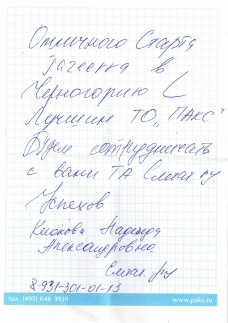 Отличного Старта
в
Черногорию с
Лучшим ТО "ПАКС"
Будем сотрудничать
с вами ТА Слетать.ру
Успехов
Надежда
Александровна
Слетать.ру
8-931-301-01-13
тел. (495) 646 3939 www.paks.ru